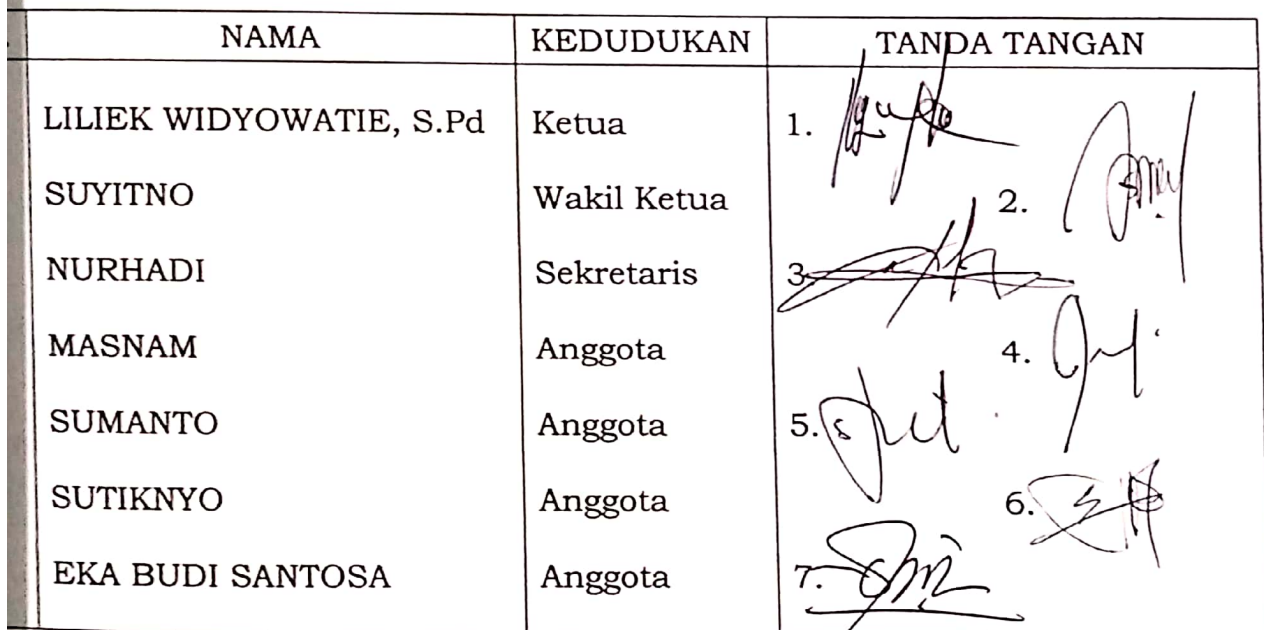 NAMA KEDUDUKAN TANDA TANGAN
LILIEK WIDYOWATIE, S.Pd Ketua 1.
SUYITNO Wakil Ketua 2.
NURHADI Sekretaris 3
MASNAM Anggota 4.
SUMANTO Anggota 5.
SUTIKNYO Anggota 6.
EKA BUDI SANTOSA Anggota 7.